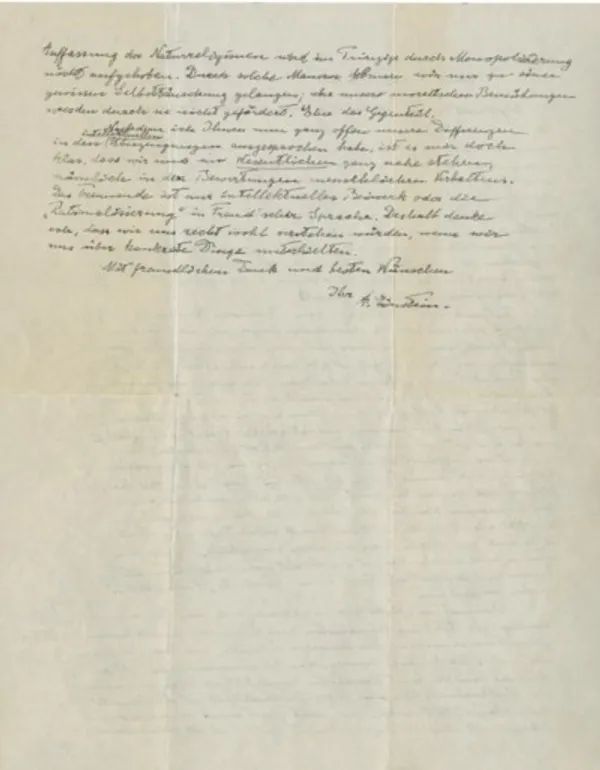 Auffassung der Naturreligionen wird im Prinzip durch Monopolisierung
nicht aufgehoben. Durch solche Mauern können wir nur zu einer
gewissen Selbsttäuschung gelangen; aber unsere moralischen Bemühungen
werden durch sie nicht gefördert. Eher das Gegenteil.
Nachdem ich Ihnen nun ganz offen unsere Differenzen
intellektuellen
in den Überzeugungen ausgesprochen habe, ist es mir doch
klar, dass wir uns im Wesentlichen ganz nahe stehen,
nämlich in den Bewertungen menschlichen Verhaltens.
Das Trennende ist nur intellektuelles Beiwerk oder die
„Rationalisierung" in Freud'scher Sprache. Deshalb denke
ich, dass wir uns recht wohl verstehen würden, wenn wir
uns über konkrete Dinge unterhielten.
Mit freundlichem Dank und besten Wünschen
Ihr A. Einstein.